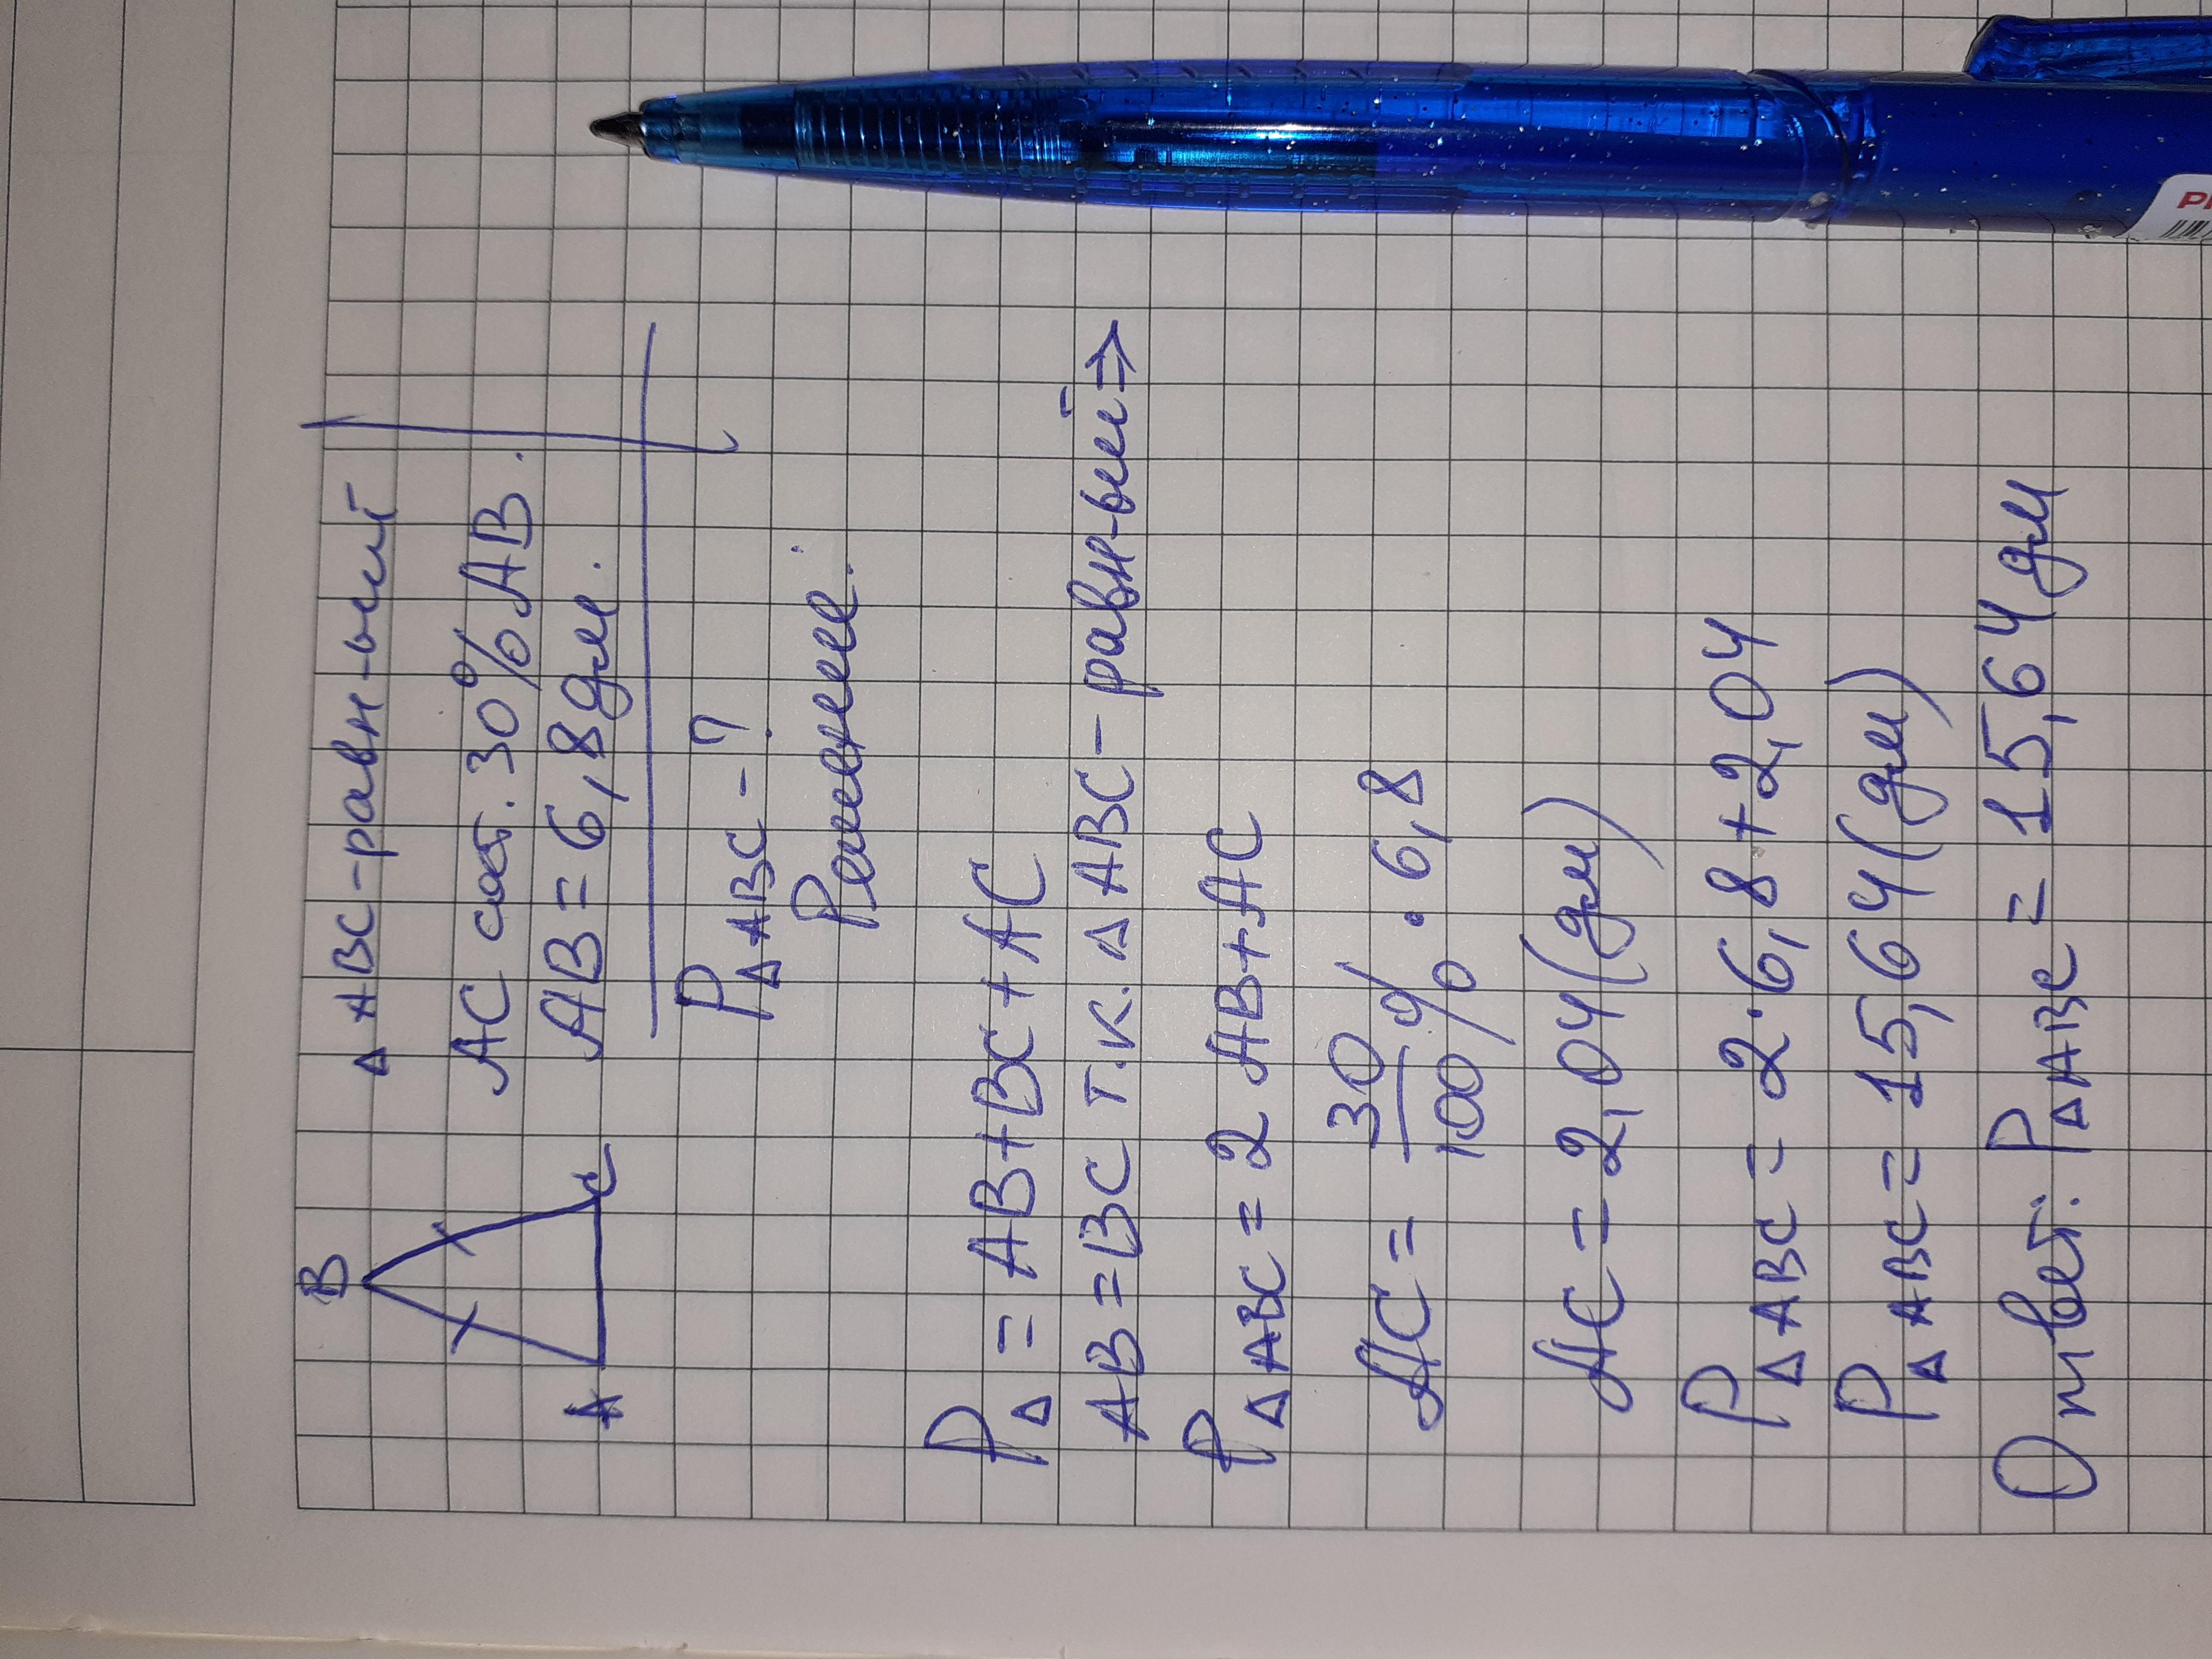 B
A
C
△ ABC-равн-ый
AC сост. 30% AB.
AB = 6,8дм.
P△ABC-?
Решение:
P△ = AB+BC+AC
AB=BC т.к. △ABC-равн-ый⇒
P△ABC = 2 AB+AC
AC = 30/100 % · 6,8
AC = 2,04(дм)
P△ABC = 2·6,8+2,04
P△ABC = 15,64(дм)
Ответ: P△ABC = 15,64дм